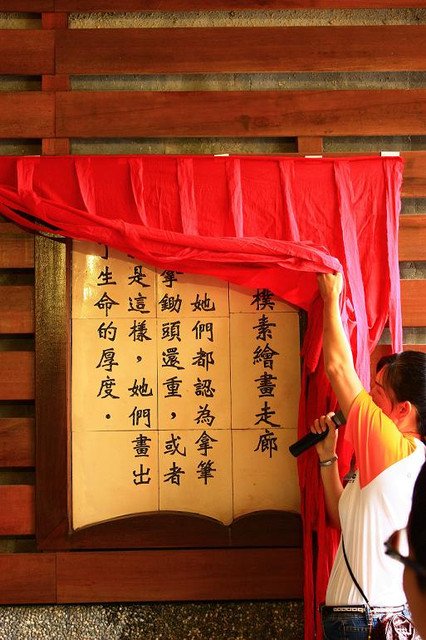 樸素繪畫走廊
她們都認為拿筆
拿鋤頭還重，或者
是這樣，她們畫出
了生命的厚度．